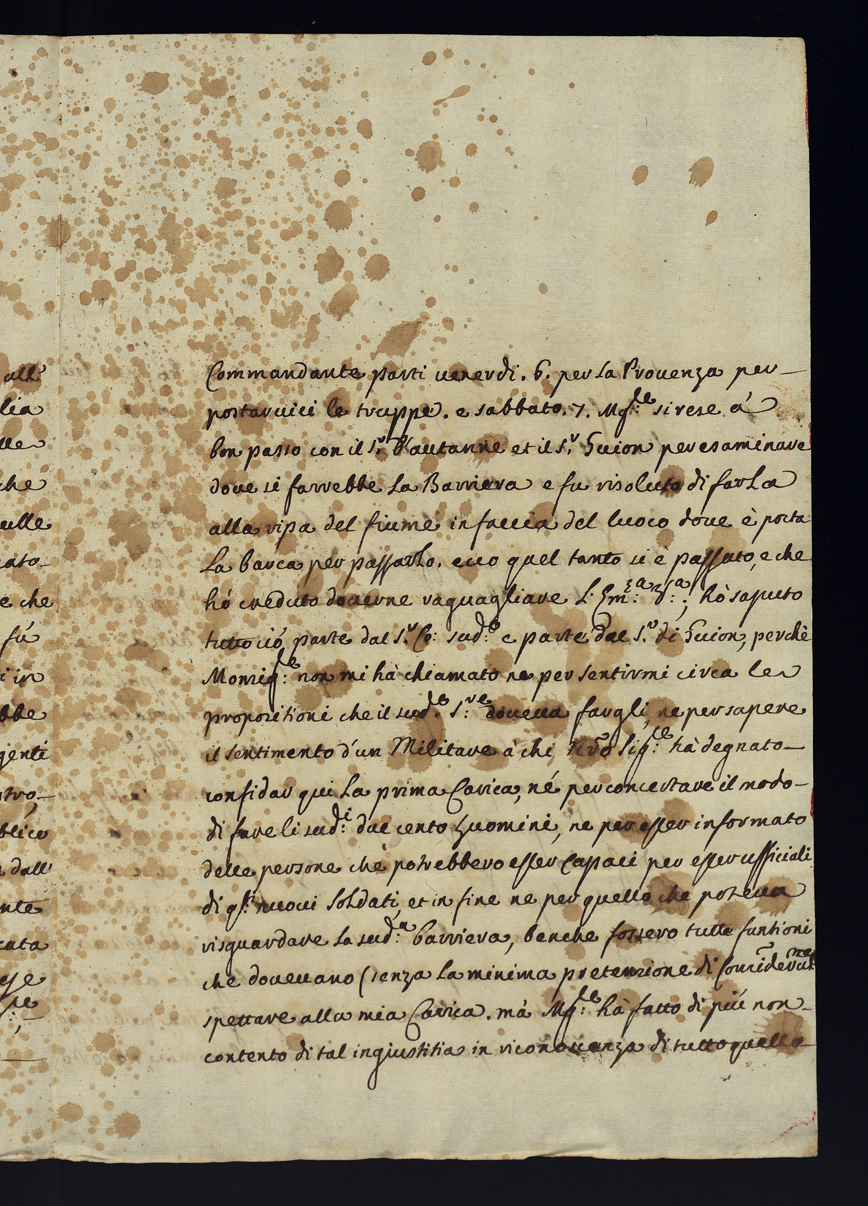 all'
lia
lle
che
sulle
cato-
e che
fú
i in
bbe
genti
stro,
blico
dall'
nte
cata
ese
Commandante parti venerdi. 6. per la Provenza per-
portarvici le truppe. e sabbato. 7. Mgr.e si rese á
bon passo con il Sr. Vautanne et il Sr. Guion per esaminare
dove si farrebbe la Barriera e fu risoluto di farla
alla ripa del fiume in faccia del luoco dove è posta
la barca per passarlo. ecco quel tanto si è passato, e che
hó creduto doverne raguagliare L'Em:za V:ra; hó saputo
tutto ció parte dal Sr. Co: sud:o e parte dal Sr. di Guion, perchè
Monsig:re non mi há chiamato ne per sentirmi circa le
propositioni che il sud:o S:re doveva fargli, ne per sapere
il sentimento d'un Militare à chi Nro Sig:re há degnato-
confidar qui la prima Carica, né per concertare il modo-
di fare li sud:i due cento huomini, ne per esser informato
delle persone che potrebbero esser Capaci per esser ufficiali
di qsti nuovi soldati, et in fine ne per quello che poteva
risguardare la sud:a barriera, benche fossero tutte funtioni
che dovevano (senza la minima pretenzione
spettare alla mia Carica. má Mgr:e há fatto di piú non-
contento di tal ingiustitia in riconovanza di tutto quello